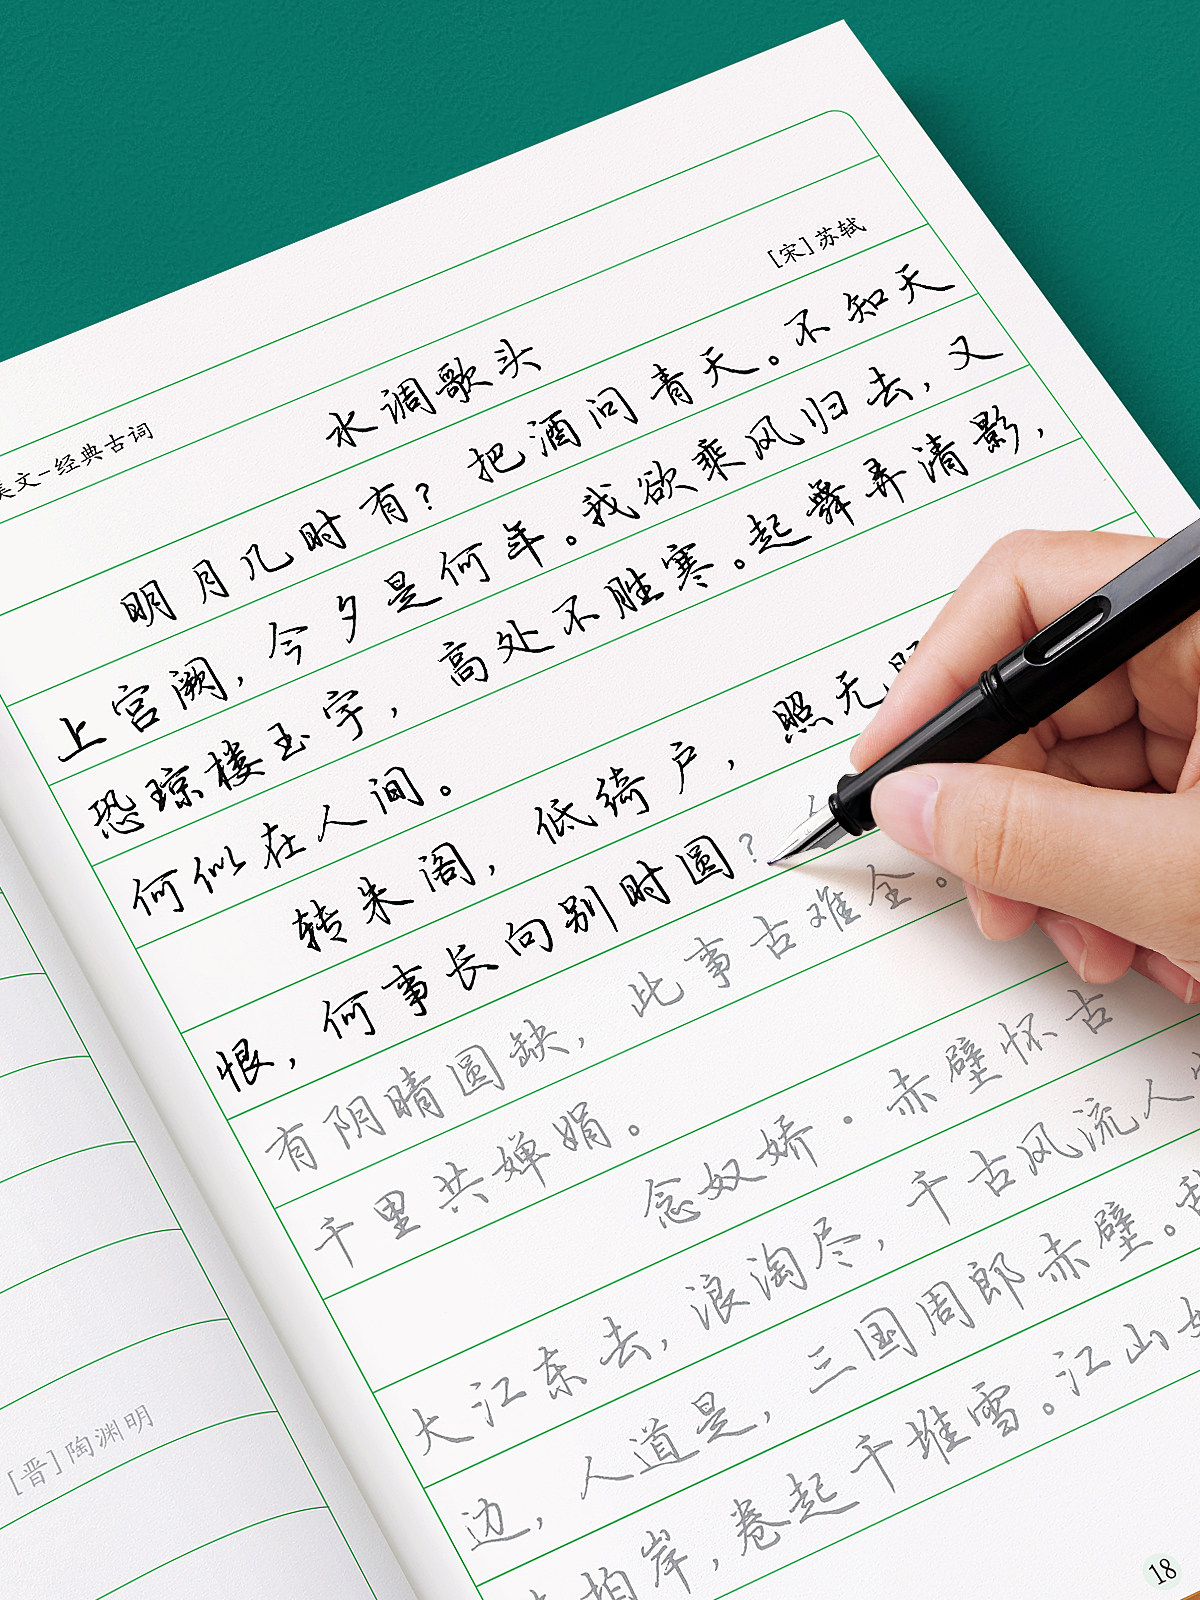 美文-经典古词
[宋]苏轼
水调歌头
明月几时有？把酒问青天。不知天
上宫阙，今夕是何年。我欲乘风归去，又
恐琼楼玉宇，高处不胜寒。起舞弄清影，
何似在人间。
转朱阁，低绮户，照无
恨，何事长向别时圆？
有阴晴圆缺，此事古难全。
千里共婵娟。
念奴娇·赤壁怀古
大江东去，浪淘尽，千古风流人
边，人道是，三国周郎赤壁。
拍岸，卷起千堆雪。江山如
[晋]陶渊明
18